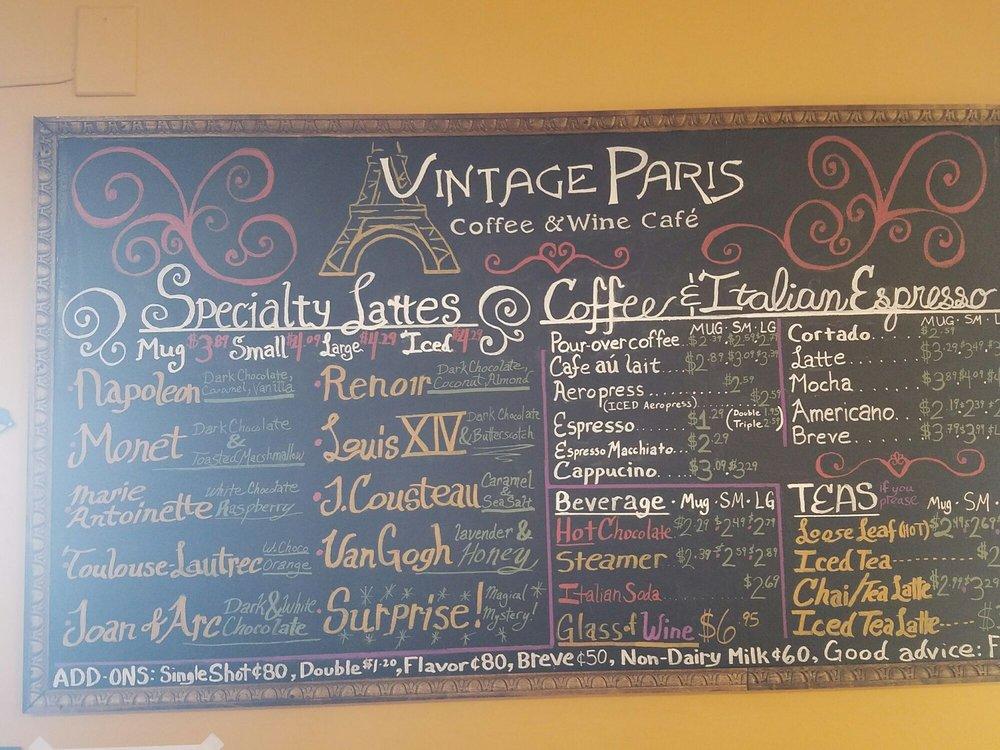 VINTAGE PARIS
Coffee & Wine Café
Specialty Lattes
Mug $3.89 Small $4.09 Large $4.29 Iced $4.29
Napoleon Dark Chocolate, Caramel, Vanilla
Renoir Dark Chocolate, Coconut, Almond
Monet Dark Chocolate & Toasted Marshmallow
Louis XIV Dark Chocolate & Butterscotch
Marie Antoinette White Chocolate Raspberry
J. Cousteau Caramel & Sea Salt
Toulouse-Lautrec W. Choco Orange
Van Gogh lavender & Honey
Joan of Arc Dark & White Chocolate
Surprise! Magical Mystery!
Coffee & Italian Espresso
MUG · SM · LG
Pour-over coffee.. $2.39 $2.59 $2.79
Cafe au lait.... $2.89 $3.09 $3.39
Aeropress........ $2.59
(ICED Aeropress)........ $2.59
Espresso........ $1.29 (Double 1.95
Triple 2.59)
Espresso Macchiato... $2.29
Cappucino...... $3.09 $3.29
MUG · SM · L
Cortado.... $2.59
Latte...... $3.29, $3.49,
Mocha...... $3.89 $4.09
Americano.... $2.19 $2.39
Breve..... $3.79 $3.99
Beverage · Mug · SM · LG
Hot Chocolate $2.29 $2.49 $2.79
Steamer $2.39 $2.59 $2.89
Italian Soda $2.69
Glass of Wine $6.95
TEAS if you please Mug · SM ·
Loose Leaf (HOT) $2.49 $2.69
Iced Tea
Chai/Tea Latte $2.99 $3.29
Iced Tea Latte
ADD-ONS: Single Shot ¢80, Double $1.20, Flavor ¢80, Breve ¢50, Non-Dairy Milk ¢60, Good advice: F